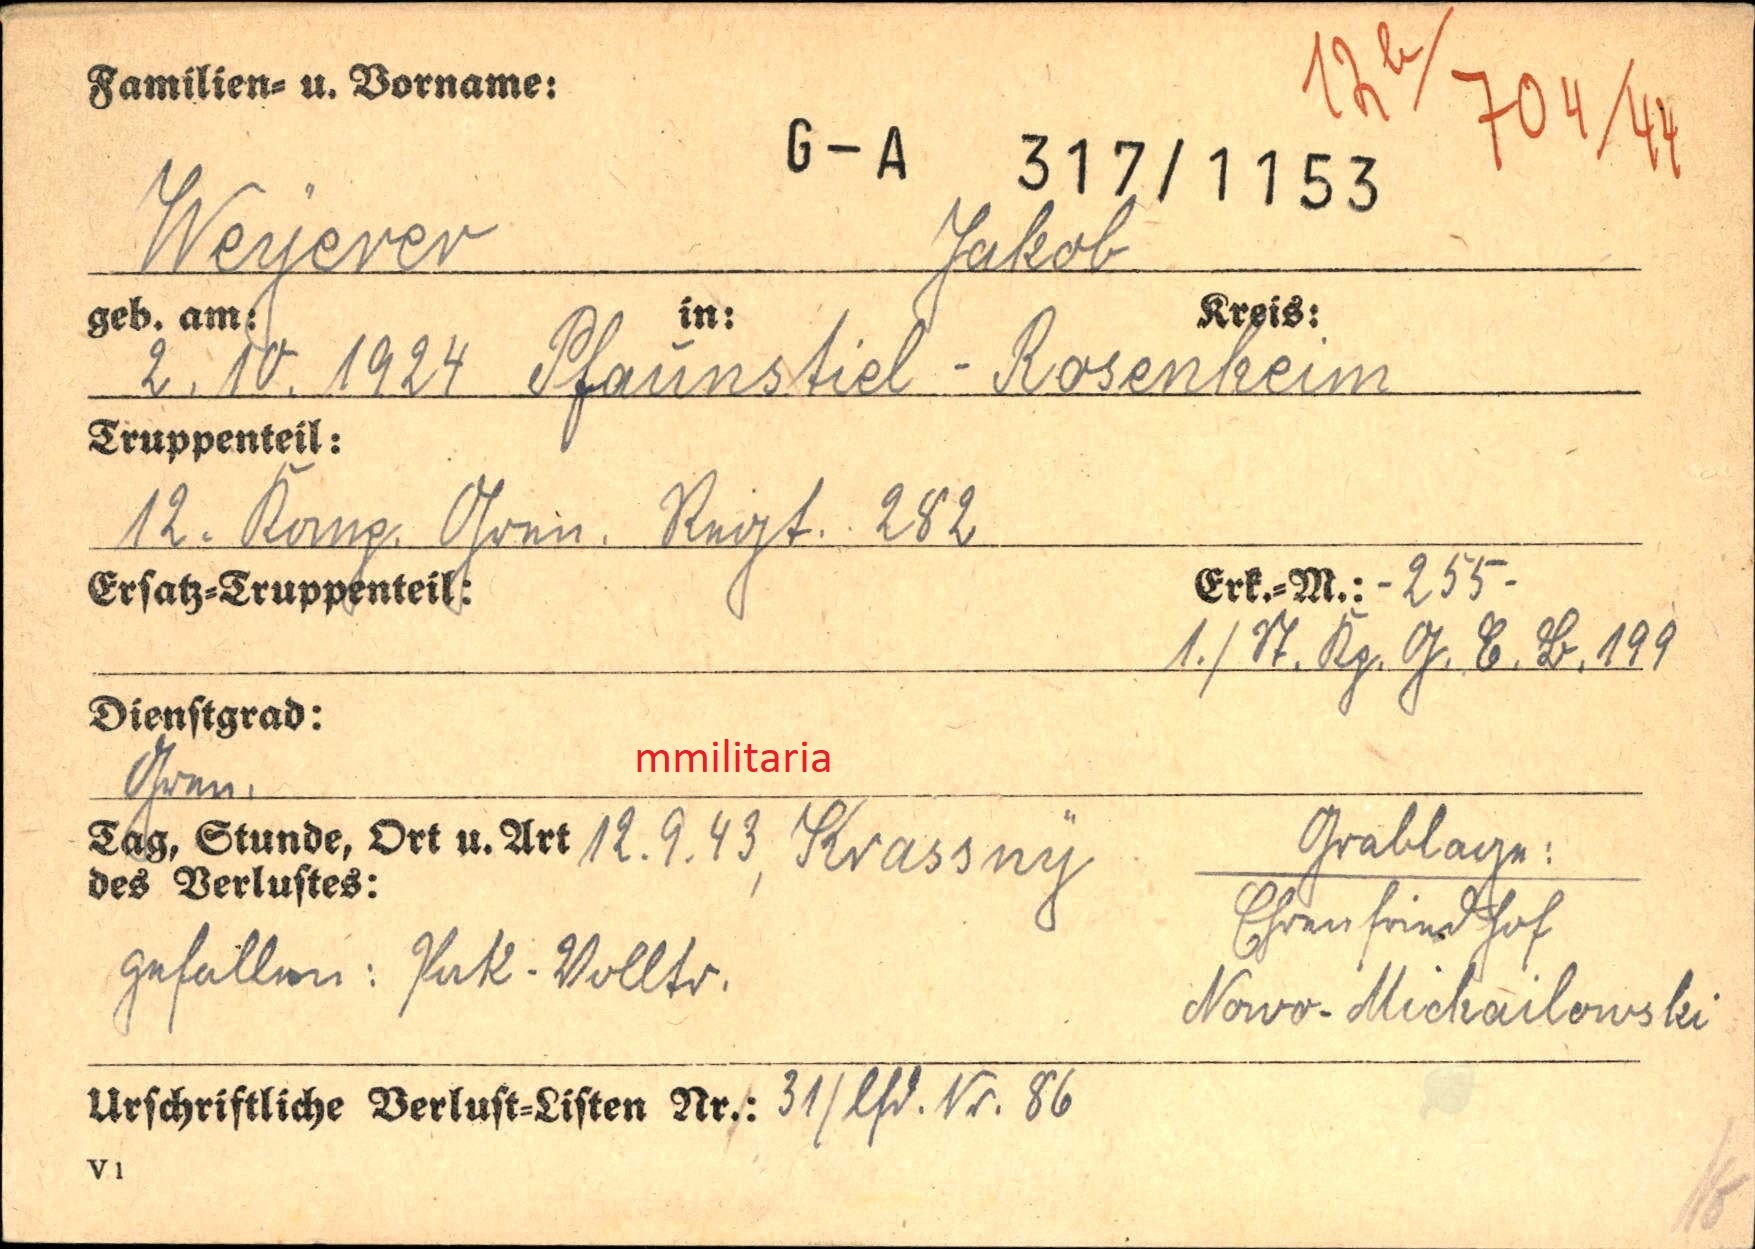 12b/704/44
Familien- u. Vorname:
G-A 317/1153
Weyerer Jakob
geb. am: in: Kreis:
2.10.1924 Pfaunstiel - Rosenheim
Truppenteil:
12. Komp. Gren. Regt. 282
Ersatz-Truppenteil: Erk.-M.: -255-
1./ St. Kp. G. E. B. 199
Dienstgrad:
Gren.
mmilitaria
Tag, Stunde, Ort u. Art 12.9.43, Krassny
des Verlustes:
Grablage:
Ehrenfriedhof
gefallen: Pak-Volltr.
Nowo-Michailowski
Urschriftliche Verlust-Listen Nr.: 31/lfd. Nr. 86
V 1